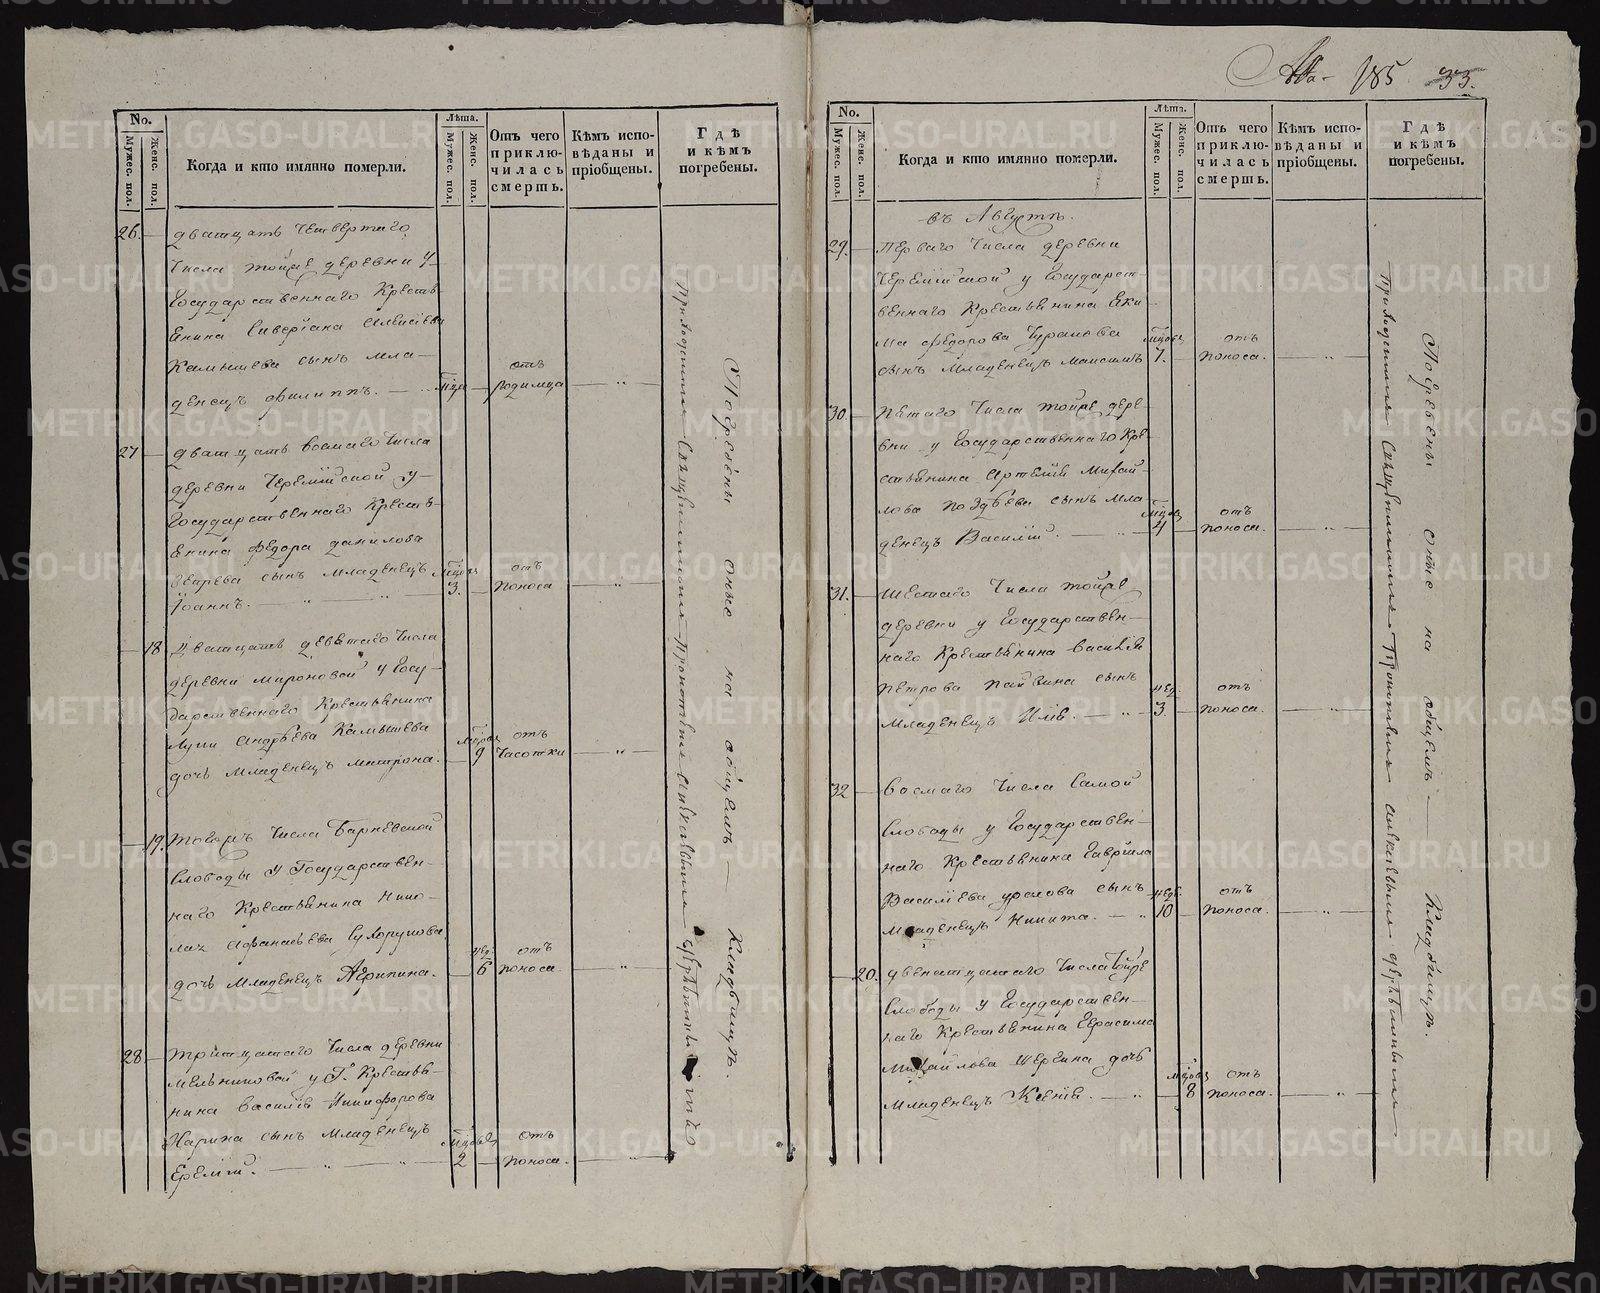 185 33.
No.
Мужес. пол.
Женс. пол.
Когда и кто имянно померли.
Лѣта.
Мужес. пол.
Женс. пол.
Отъ чего приклю-чилась смерть.
Кѣмъ испо-вѣданы и пріобщены.
Гдѣ и кѣмъ погребены.
26.
дватцать четвертаго
числа тойже деревни у
Государственнаго Кресть-
янина
Камышева сынъ мла-
денецъ Филиппъ.
отъ
родимца
27
дватцать восмаго числа
деревни у
Государственнаго Кресть-
янина Федора Данилова
Зверева сынъ младенецъ
Іоаннъ.
3.
отъ
поноса
18
дватцать девятаго числа
деревни Мироновой у Госу-
дарственнаго Крестьянина
Лупи Андрѣева Камышева
дочь младенецъ Матрона.
9
отъ
чесотки
19.
тогожъ числа Барневской
слободы у Государствен-
наго Крестьянина Нико-
лая Афанасьева Сухорукова
дочь младенецъ Агрипина.
нед.
6
отъ
поноса
28
тритцатаго числа деревни
Мельниковой у Г. Крестья-
нина Василія Никифорова
сынъ младенецъ
Еремѣй.
2
отъ
поноса.
Погребены оные на общемъ Кладбищѣ.
No.
Мужес. пол.
Женс. пол.
Когда и кто имянно померли.
Лѣта.
Мужес. пол.
Женс. пол.
Отъ чего приклю-чилась смерть.
Кѣмъ испо-вѣданы и пріобщены.
Гдѣ и кѣмъ погребены.
въ Августѣ.
29.
перваго числа деревни
у Государст-
веннаго Крестьянина Яки-
ма Федорова
сынъ младенецъ Максимъ
7.
отъ
поноса.
30
пятаго числа тойже дере-
вни у Государственнаго Кре-
стьянина Артемія Михай-
лова Поздѣева сынъ мла-
денецъ Василій.
4
отъ
поноса.
31.
шестаго числа тойже
деревни у Государствен-
наго Крестьянина Василія
Петрова сынъ
младенецъ Илія.
нед.
3.
отъ
поноса.
32
восмаго числа самой
слободы у Государствен-
наго Крестьянина Гавріила
Василіева сынъ
младенецъ Никита.
нед.
10
отъ
поноса.
20.
двенатцатаго числа тойже
слободы у Государствен-
наго Крестьянина Герасима
Михайлова дочь
младенецъ Ксенія.
8
отъ
поноса.
Погребены оные на общемъ Кладбищѣ.
METRIKI.GASO-URAL.RU